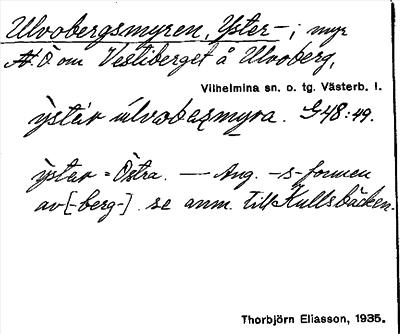 Ulvobergsmyren, Yster-; myr
N. Ö om Vestiberget å Ulvoberg,
Vilhelmina sn. o. tg. Västerb. l.
ÿstár úlvobeʂmyra. G48:49.
ÿster = Östra. — Ang. -s-formen
av [-berg-] se anm. till Kullsbäcken.
Thorbjörn Eliasson, 1935.